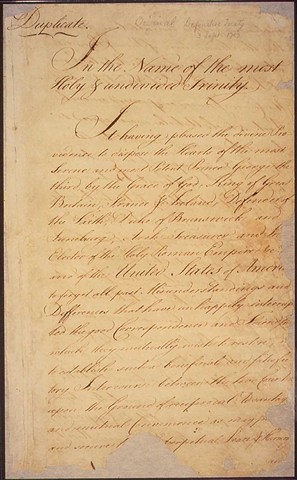 Duplicate.
Original Definitive Treaty
3 Sept. 1783
In the Name of the most
Holy & undivided Trinity.
It having pleased the divine Pro
vidence to dispose the Hearts of the most
Serene and most Potent Prince George the
third, by the Grace of God, King of Great
Britain, France & Ireland, Defender of
the Faith, Duke of Brunswick and
Lunebourg, Arch Treasurer and
Elector of the Holy Roman Empire
and of the United States of America
to forget all past Misunderstandings and
Differences that have unhappily interrup
ted the good Correspondence and Friendship
which they mutually wish to restore
to establish such a beneficial and satisfac
tory Intercourse between the two Countries
upon the Ground of reciprocal Advantages
and mutual Convenience as may
and secure perpetual Peace & Harmony